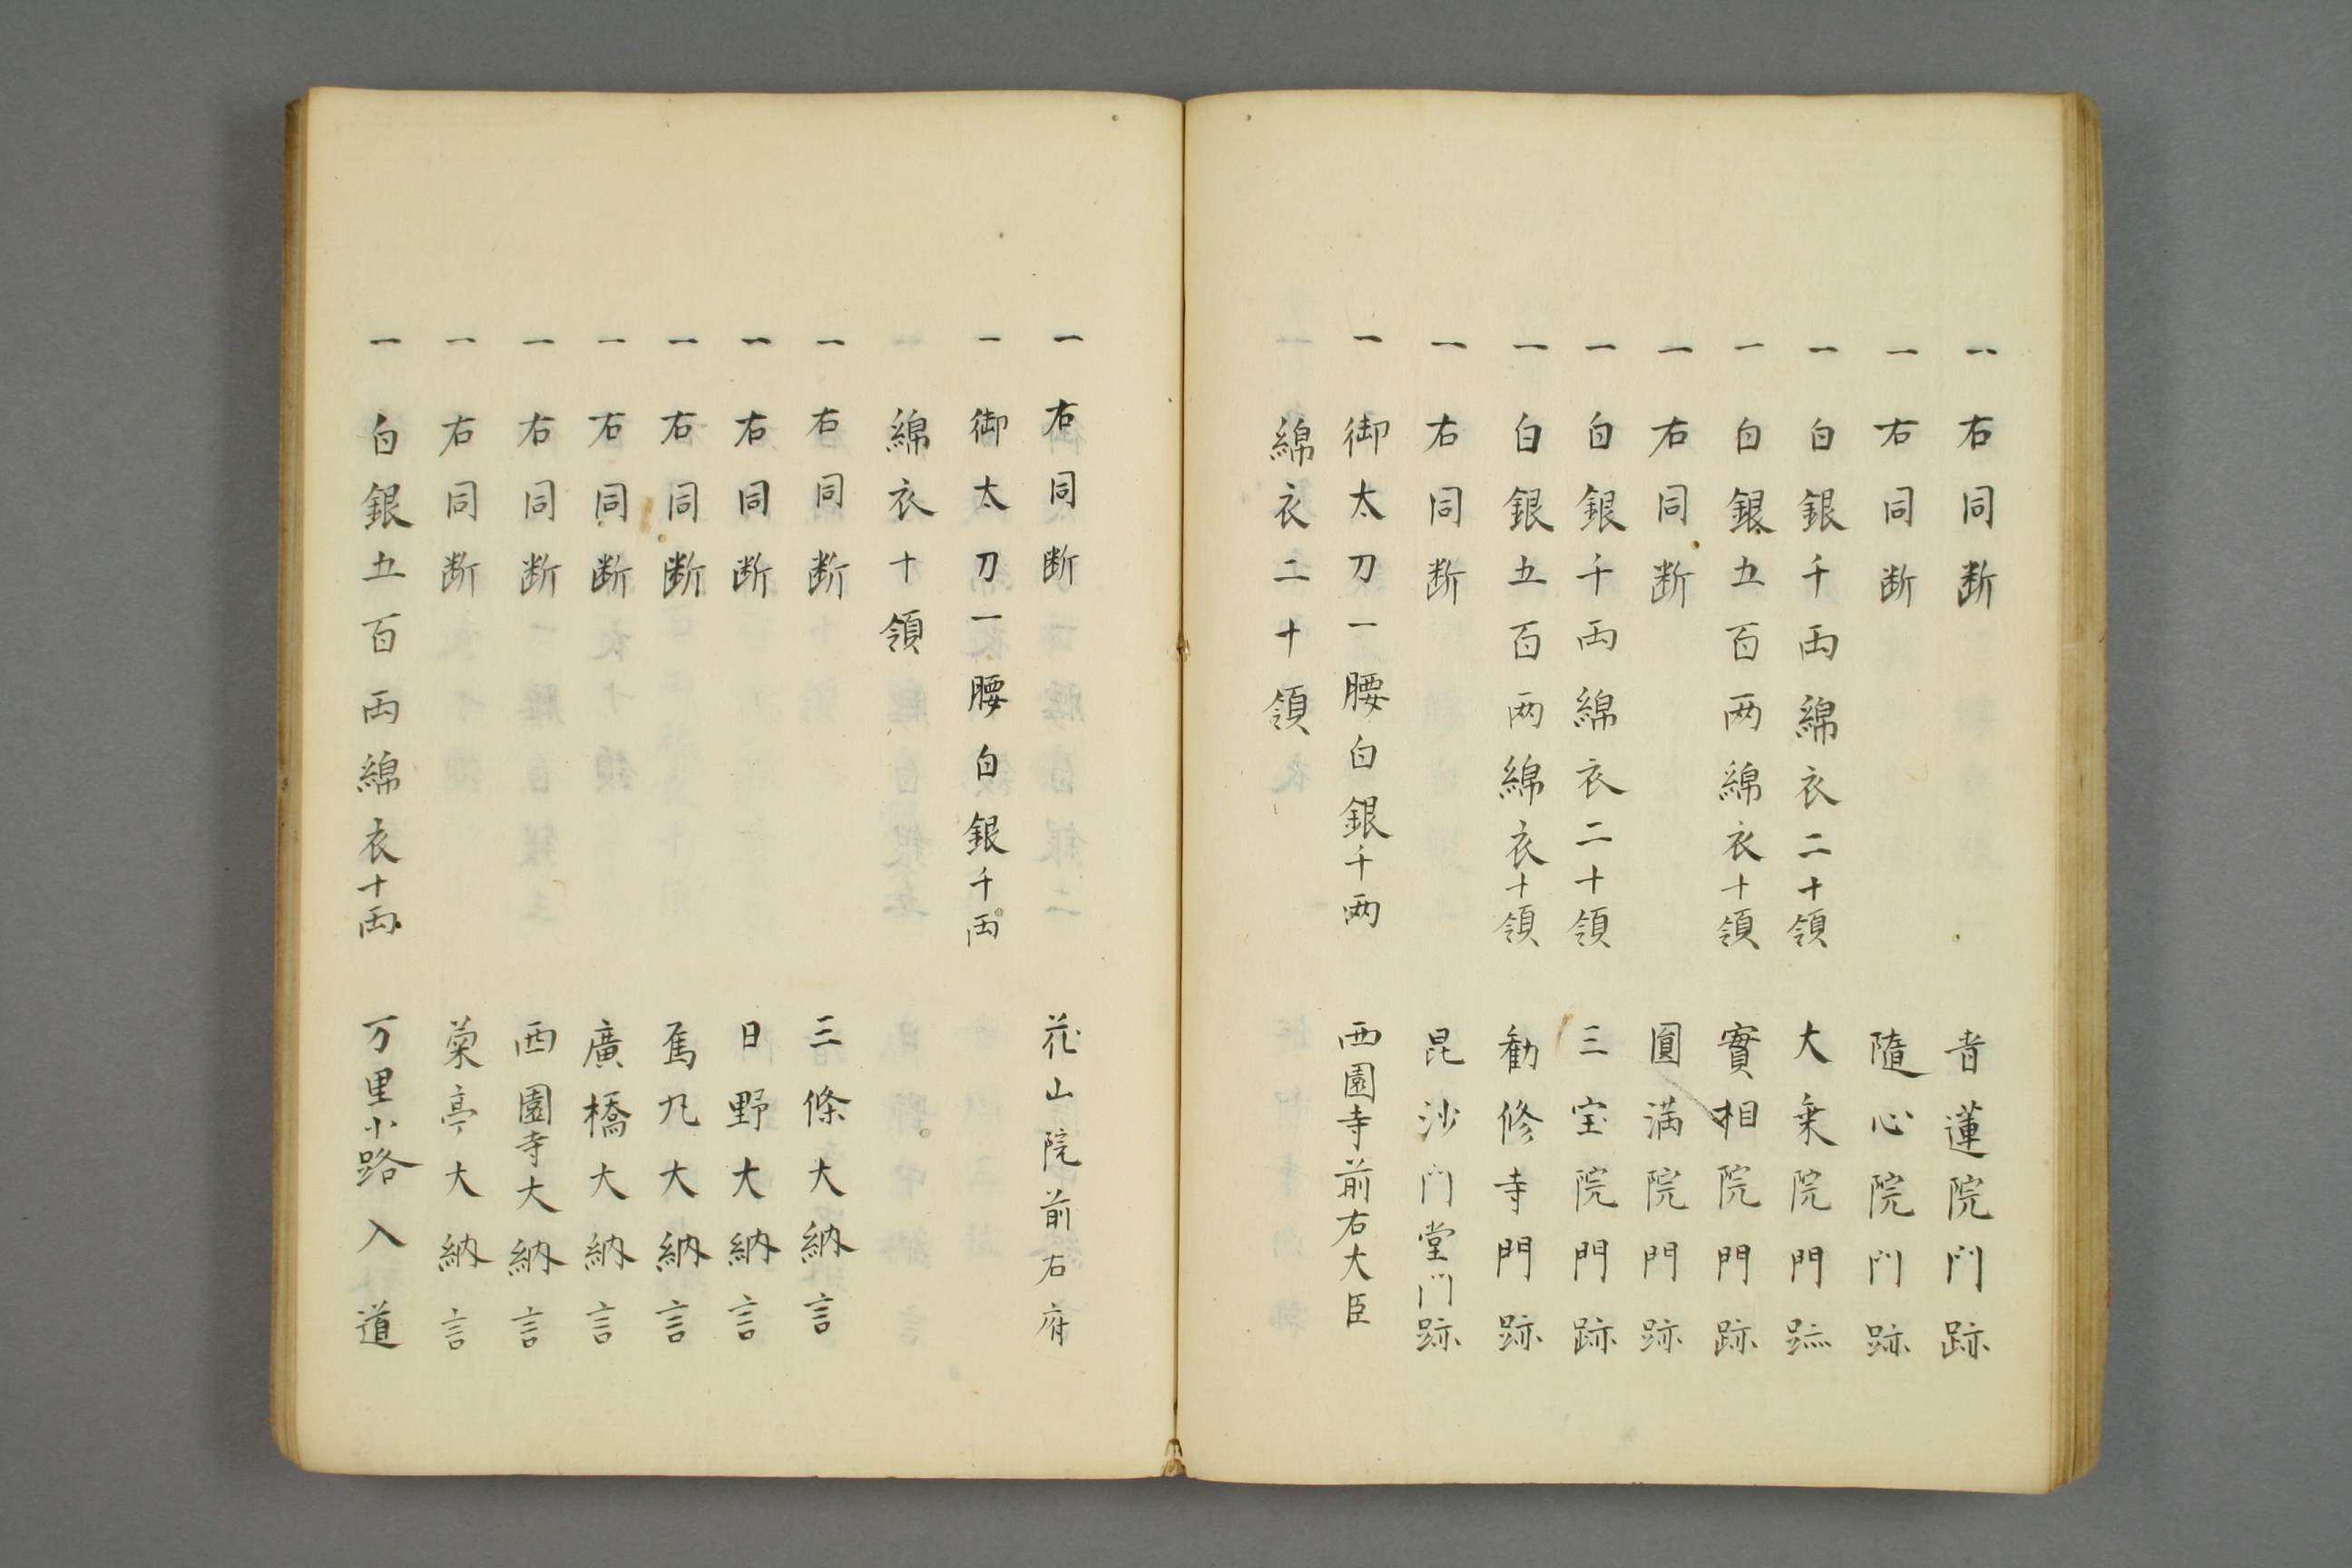 一右同断 青蓮院門跡
一右同断 隨心院門跡
一白銀千両綿衣二十領 大乗院門跡
一白銀五百両綿衣十領 實相院門跡
一右同断 圓満院門跡
一白銀千両綿衣二十領 三宝院門跡
一白銀五百両綿衣十領 勧修寺門跡
一右同断 昆沙門堂門跡
一御太刀一腰白銀千両 西園寺前右大臣
綿衣二十領
一右同断 花山院前右府
一御太刀一腰白銀千両
綿衣十領
一右同断 三條大納言
一右同断 日野大納言
一右同断 烏丸大納言
一右同断 廣橋大納言
一右同断 西園寺大納言
一右同断 菊亭大納言
一白銀五百両綿衣十両 万里小路入道